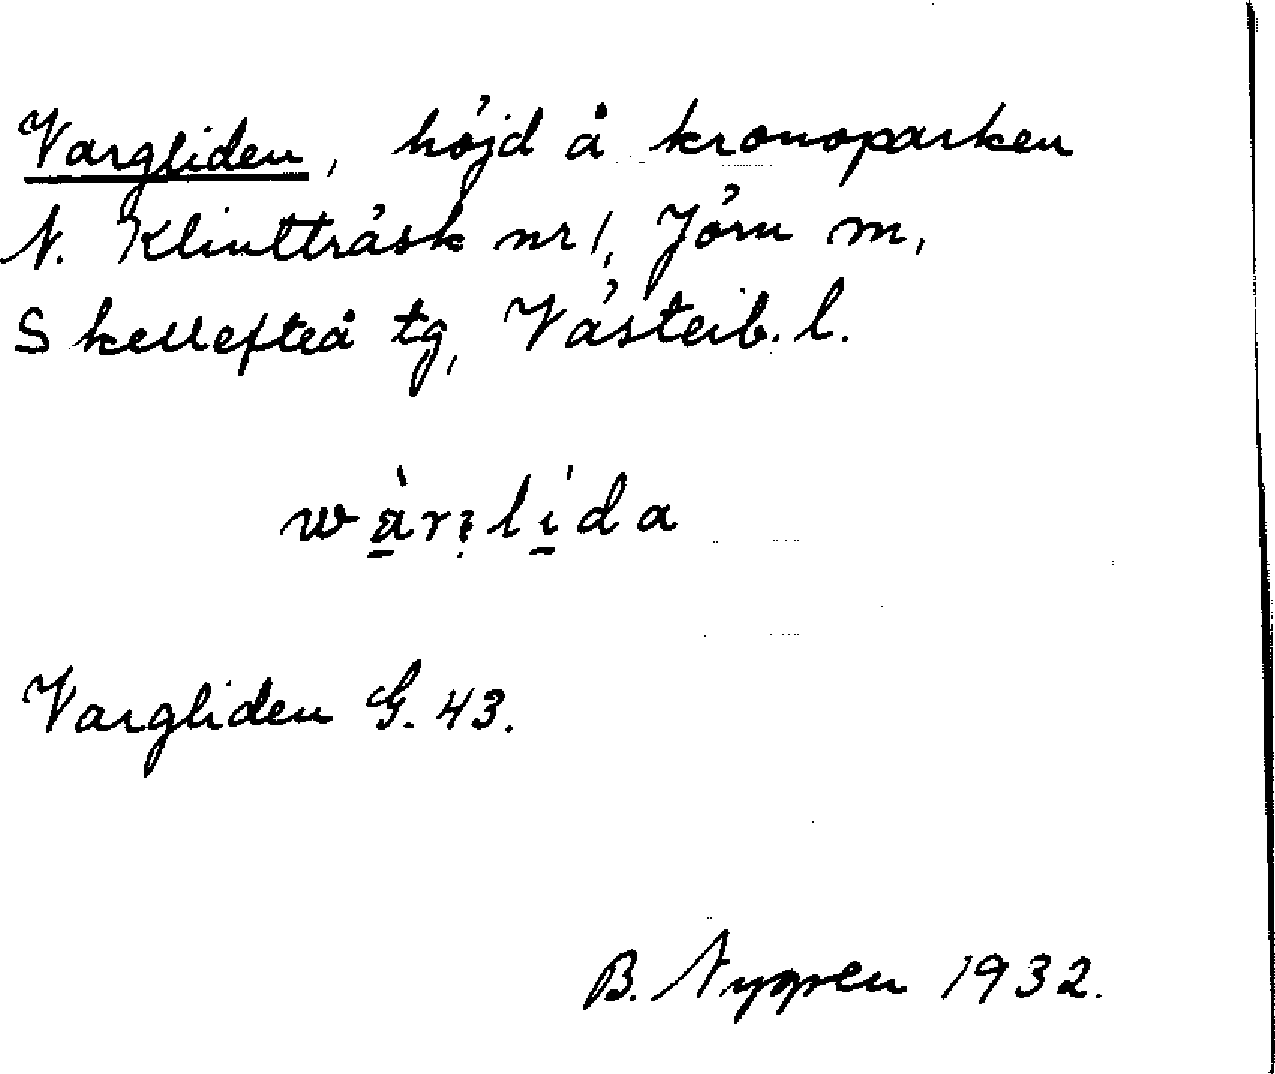 Vargliden, höjd å kronoparken
N. Klintträsk nr 1, Jörn m,
Skellefteå tg, Västerb. l.
Vargliden G. 43.
B. Nygren 1932.